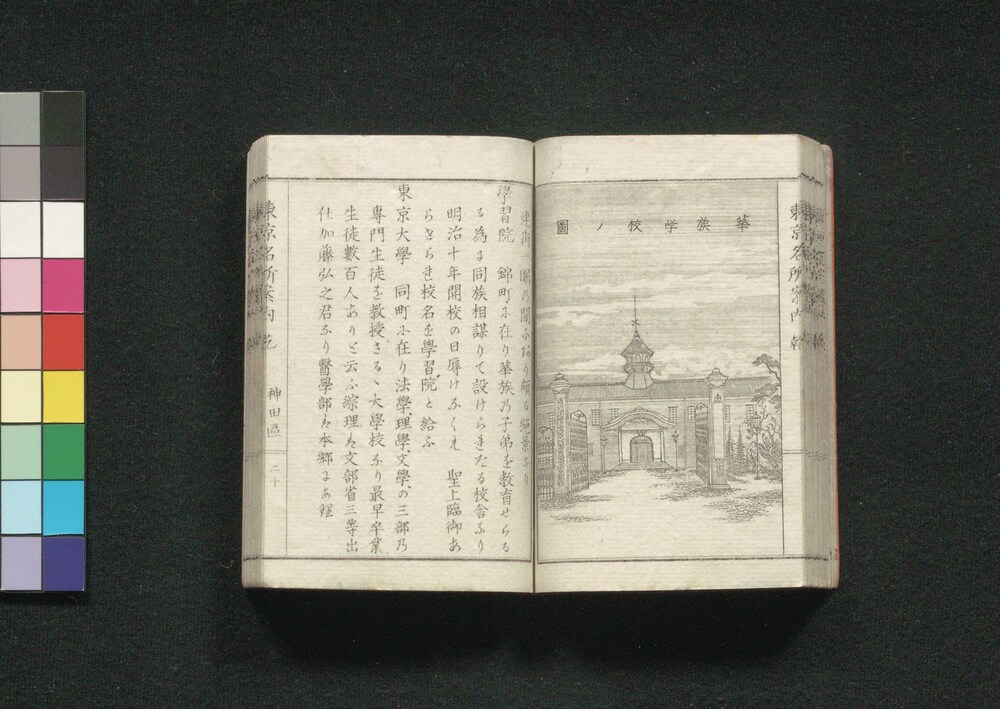 華族学校ノ圖
學習院 錦町に在り華族乃子弟を教育せらる
る為に同族相謀りて設けられたる校舎なり
明治十年開校の日辱けなくも 聖上臨御あ
らせられ校名を學習院と給ふ
東京大學 同町に在り法學、理學、文學、の三部乃
專門生徒を教授さるゝ大學校なり最早卒業
生徒數百人ありと云ふ綜理は文部省三等出
仕加藤弘之君なり醫學部は本郷にあり
東京名所案内 乾
神田區
二十